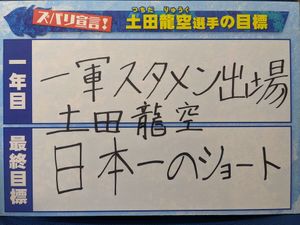 ズバリ宣言！
つちだ りゅうく
土田龍空選手の目標
一年目
一軍スタメン出場
土田龍空
最終目標
日本一のショート